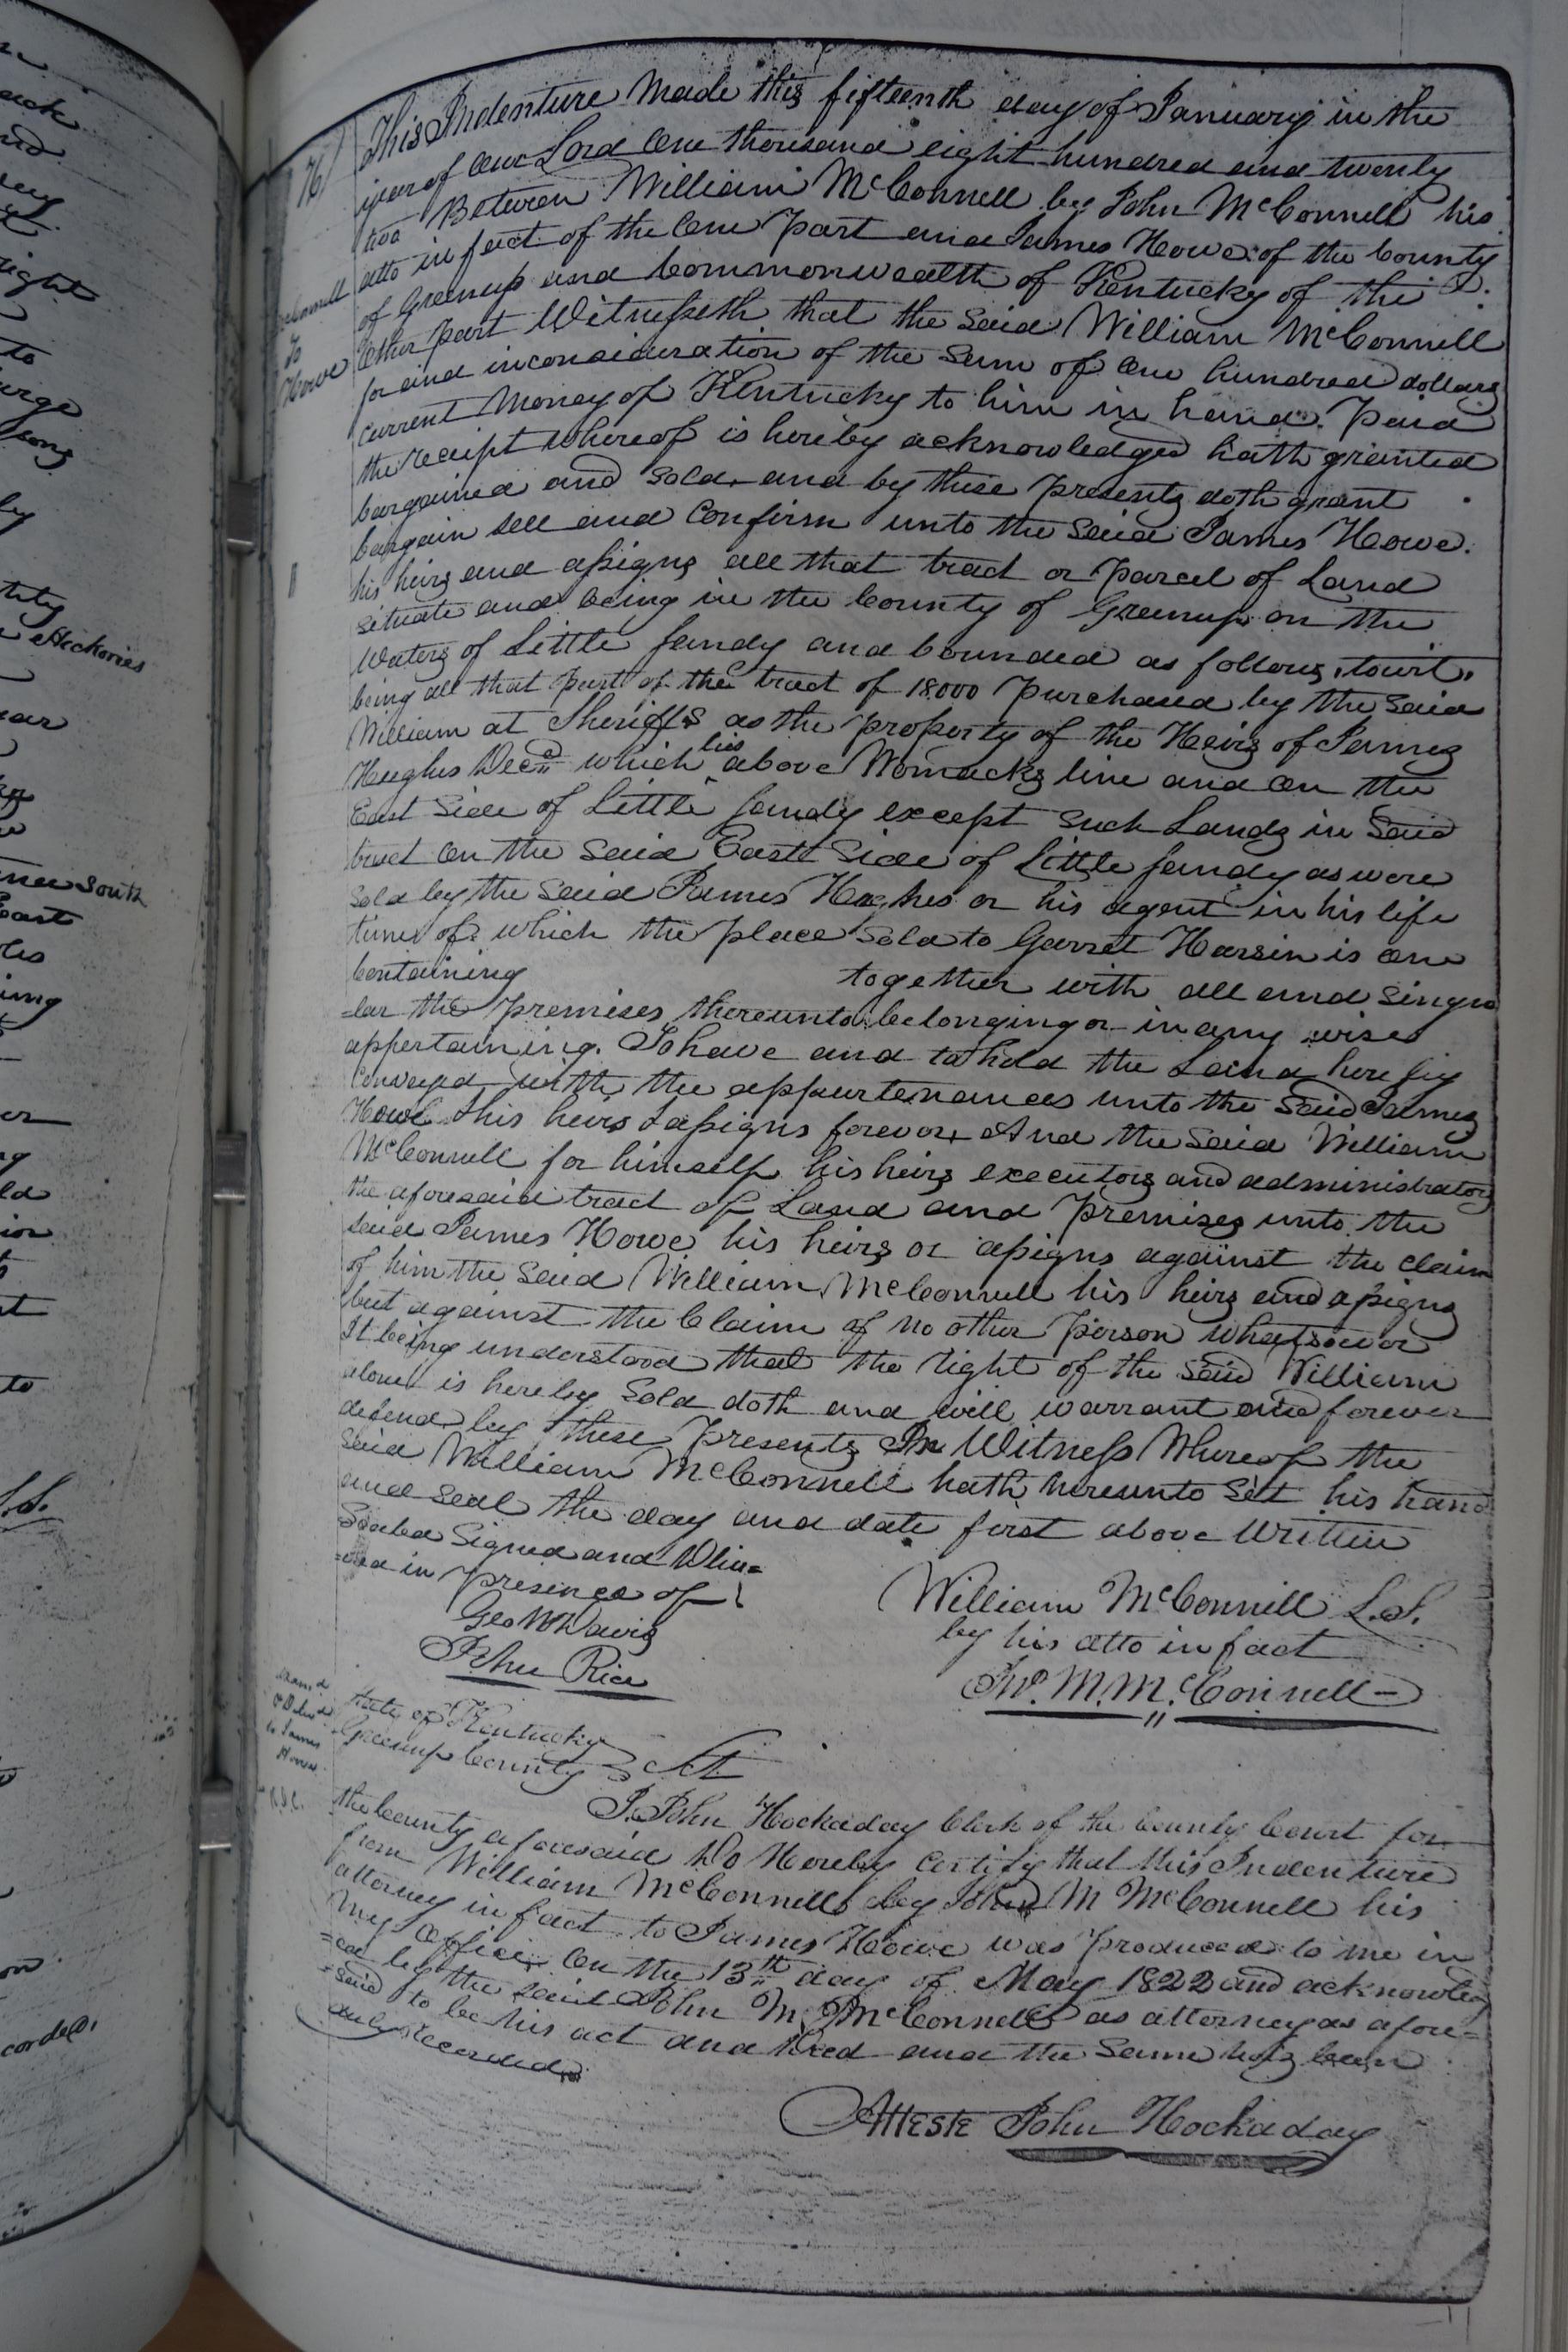 This Indenture Made this fifteenth day of January in the
year of Our Lord One thousand eight hundred and twenty
two Between William McConnell by John McConnell his
atto in fact of the One part and James Howe of the County
of Greenup and Commonwealth of Kentucky of the
Other part Witnesseth that the Said William McConnell
for and inconsideration of the Sum of One hundred dollars
Current Money of Kentucky to him in hand Paid
the receipt whereof is hereby acknowledged hath granted
bargained and Sold and by these presents doth grant
bargain sell and Confirm unto the Said James Howe
his heirs and assigns all that tract or parcel of Land
situate and being in the County of Greenup on the
Waters of Little Sandy and bounded as follows, towit,
being all that part of the tract of 18000 purchased by the Said
William at Sheriffs as the property of the Heirs of James
Hughes Decd which lies above Womacks line and on the
East Side of Little Sandy except such Lands in Said
tract on the Said East Side of Little Sandy as were
Sold by the Said James Hughes or his agent in his life
time of which the place Sold to Garret Harsin is one
Containing together with all and singu
=lar the premises thereunto belonging or in any wise
appertaining. To have and to hold the Land hereby
Conveyed with the appurtenances unto the Said James
Howe his heirs & assigns forever And the Said William
McConnell for himself his heirs executors and administrators
the aforesaid tract of Land and Premises unto the
said James Howe his heirs or assigns against the claim
of him the Said William McConnell his heirs and assigns
but against the Claim of no other Person Whatsoever
It being understood that the right of the Said William
alone is hereby Sold doth and will warrant and forever
defend by these Presents In Witness Whereof the
Said William McConnell hath hereunto Set his hand
and Seal the day and date first above Written
Sealed Signed and Deliv=
=ered in presence of
Geo W Davis
John Rice
William McConnell L.S.
by his atto in fact
Jno. M. McConnell
State of Kentucky
Greenup County Sct
I John Hockaday Clerk of the County Court for
the County aforesaid Do Hereby Certify that this Indenture
from William McConnell by John M McConnell his
attorney in fact to James Howe was produced to me in
my office On the 13th day of May 1822 and acknowledg
=ed by the said John M McConnell as attorney as afore=
=said to be his act and Deed and the Same has been
duly Recorded
Atteste John Hockaday
To
Howe